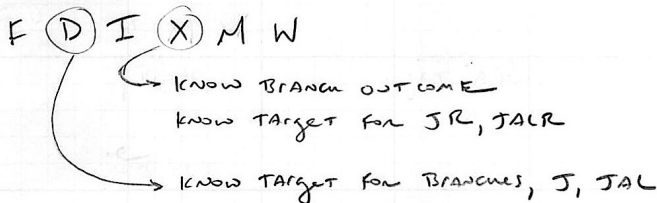 F D I X M W
KNOW BRANCH OUTCOME
KNOW TARGET FOR JR, JALR
KNOW TARGET FOR BRANCHES, J, JAL